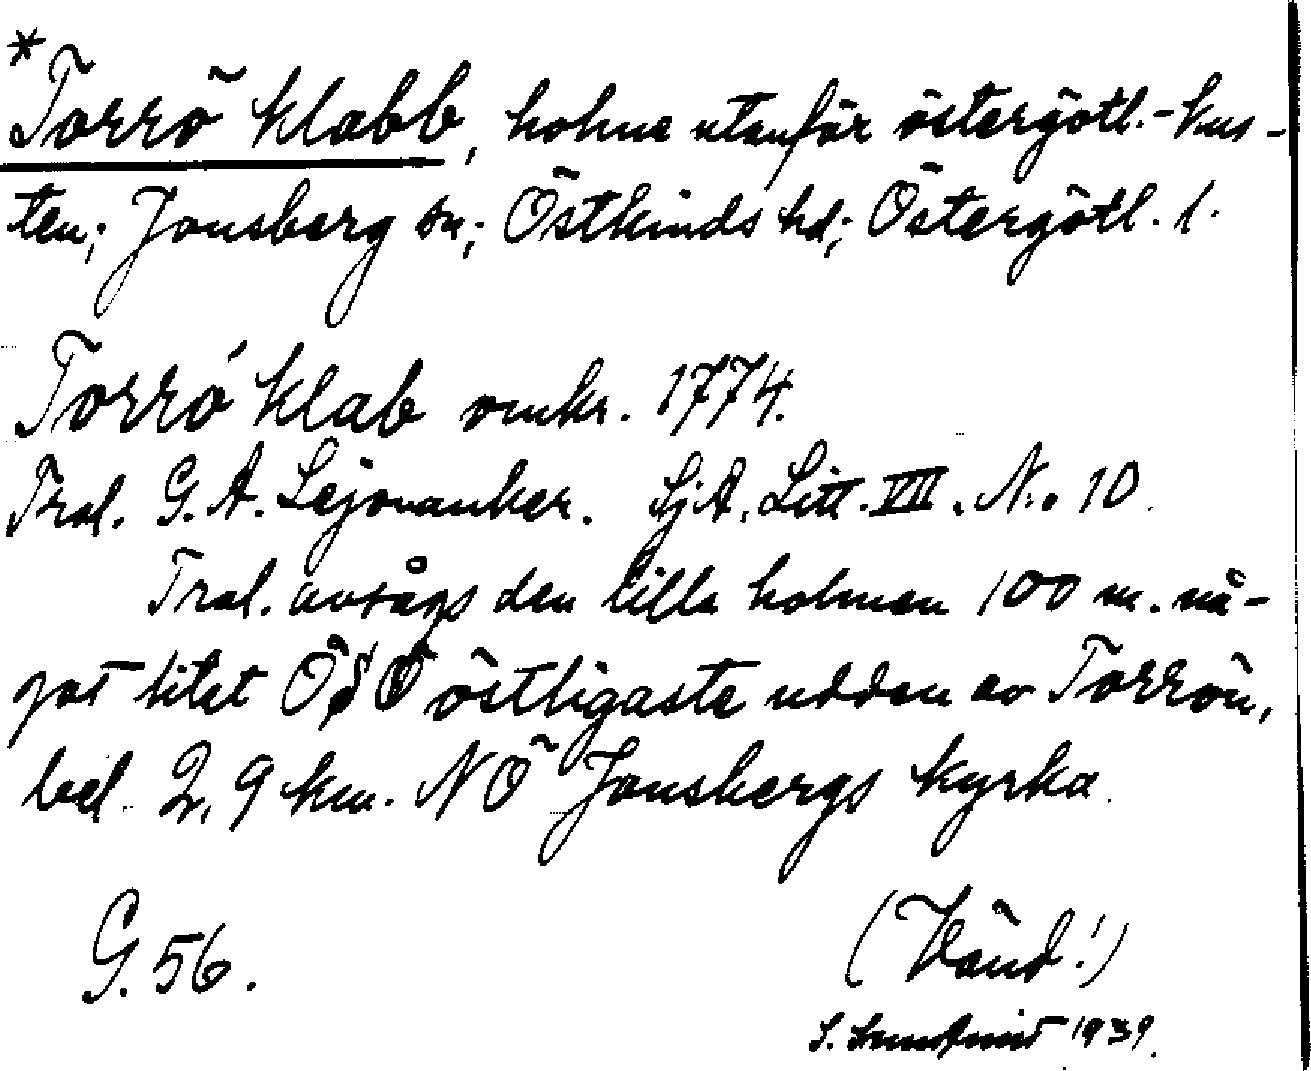 *
Torrö klabb, holme utanför östergötl.-kus-
ten; Jonsberg sn; Östkinds hd; Östergötl. l.
Torrö klab omkr. 1774.
Trol. G. A. Lejonanker. SjA. Litt. VII. No 10.
Trol. avsågs den lilla holmen 100 m. nå-
got litet ÖSÖ östligaste udden av Torrön,
bel. 2,9 km. NÖ Jonsbergs kyrka.
G. 56.
(Vänd!)
S. 1939.